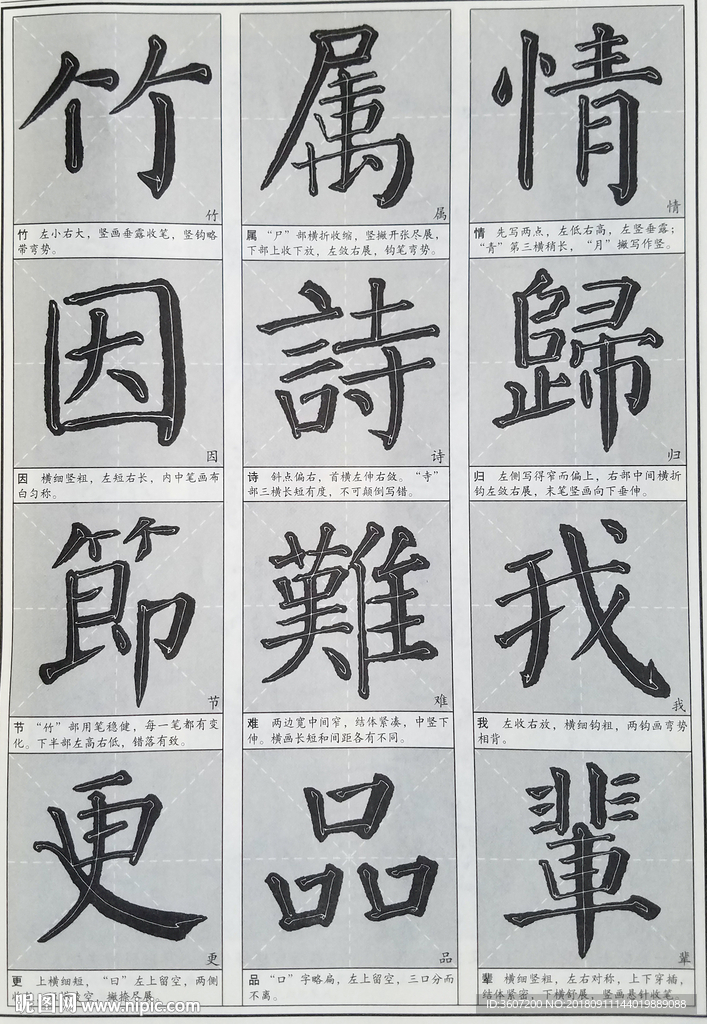 竹 属 情
竹 属 情
竹 左小右大，竖画垂露收笔，竖钩略
带弯势。
属 “尸”部横折收缩，竖撇开张尽展，
下部上收下放，左敛右展，钩笔弯势。
情 先写两点，左低右高，左竖垂露；
“青”第三横稍长，“月”撇写作竖。
因 詩 歸
因 诗 归
因 横细竖粗，左短右长，内中笔画布
白匀称。
诗 斜点偏右，首横左伸右敛。“寺”
部三横长短有度，不可颠倒写错。
归 左侧写得窄而偏上，右部中间横折
钩左敛右展，末笔竖画向下垂伸。
節 難 我
节 难 我
节 “竹”部用笔稳健，每一笔都有变
化。下半部左高右低，错落有致。
难 两边宽中间窄，结体紧凑，中竖下
伸。横画长短和间距各有不同。
我 左收右放，横细钩粗，两钩画弯势
相背。
更 品 輩
更 品 辈
更 上横细短，“曰”左上留空，两侧
空，撇捺尽展。
品 “口”字略扁，左上留空，三口分而
不离。
辈 横细竖粗，左右对称，上下穿插，
结体紧密，下横舒展，竖画悬针收笔。
昵图网 www.nipic.com
ID:3607200 NO:20180911144019889088